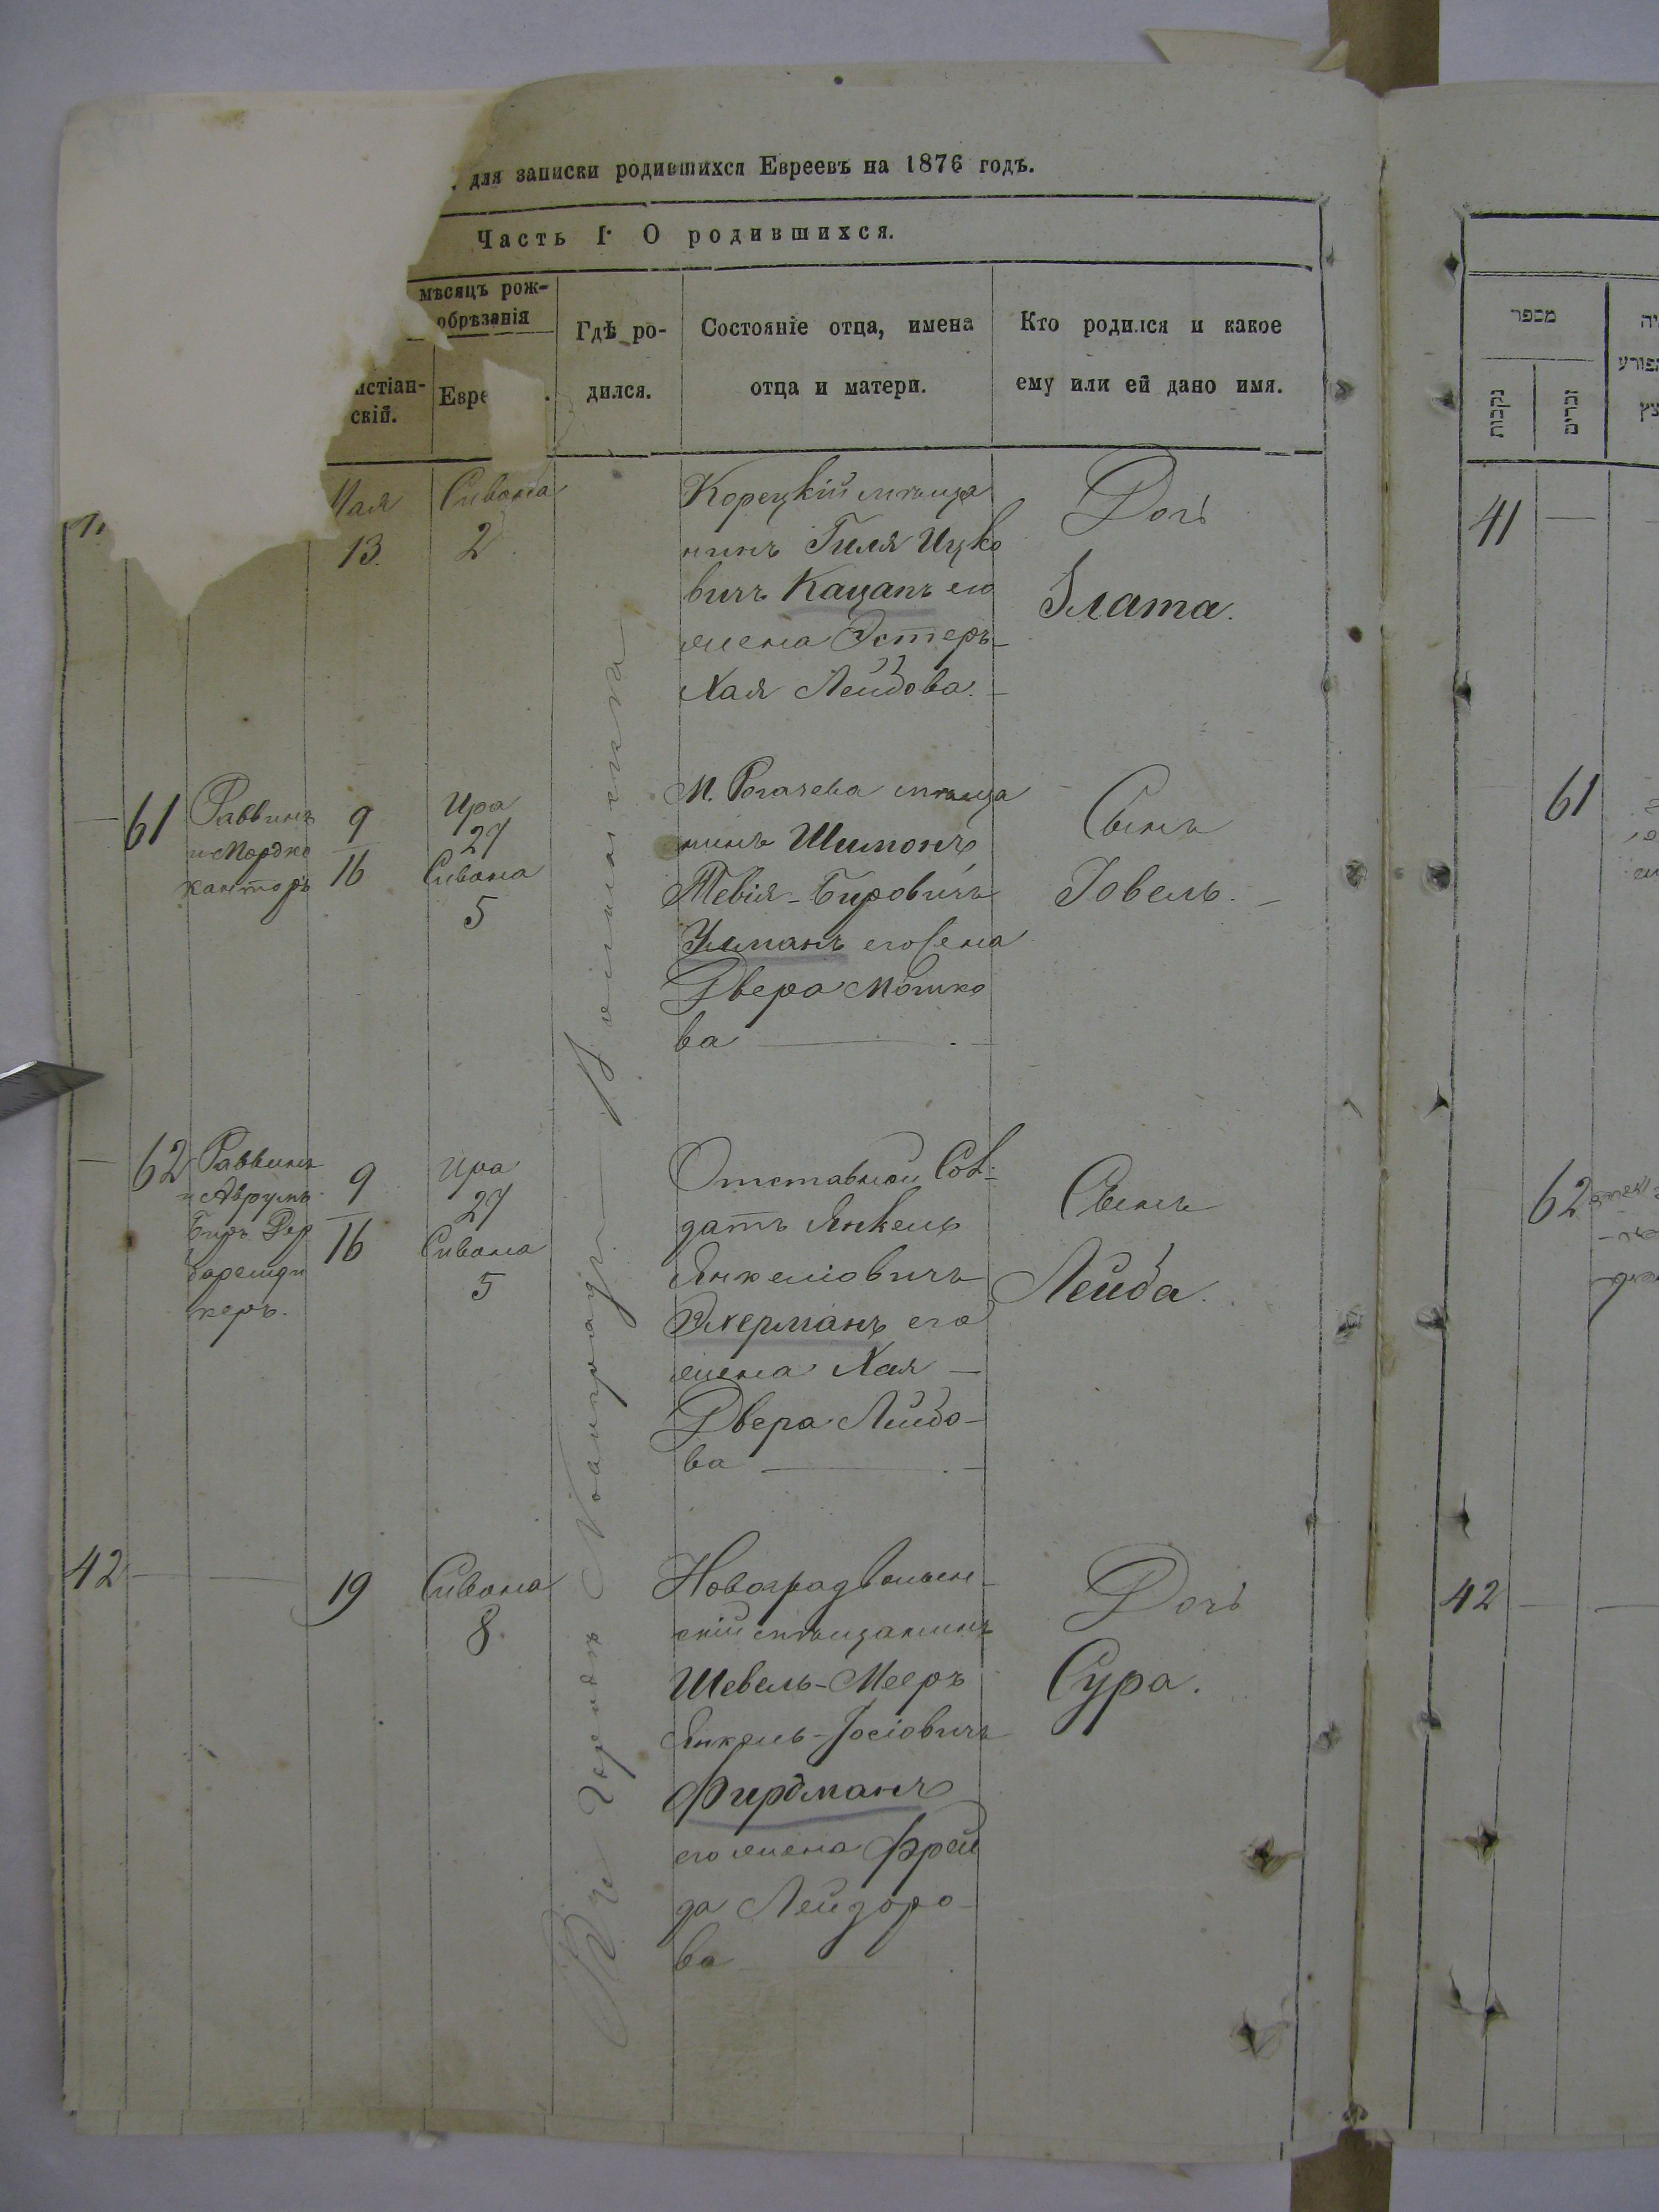 для записки родившихся Евреевъ на 1876 годъ.
Часть I. О родившихся.
мѣсяцъ рож-
обрѣзанія
істіан-
скій.
Евре
Гдѣ ро-
дился.
Состояніе отца, имена
отца и матери.
Кто родился и какое
ему или ей дано имя.
Мая
13.
Сивана
2
Корецкій мѣща
нинъ Гиля Ицко
вичъ Кацапъ его
жена Эстеръ-
Хая Лейбова.
Дочь
Злата.
В городѣ Новоградъ Волынска
61
Раввинъ
и Мордко
канторъ
9
16
Ира
27
Сивана
5
М. Рогачева мѣща
нинъ Шимонъ
Тевія-Бировичъ
его жена
Двера Мошко
ва
Сынъ
Іовель.
62
Раввинъ
и Аврумъ
Беръ
9
16
Ира
27
Сивана
5
Отставной Сол-
датъ Янкель
Янкеліовичъ
его
жена Хая
Двера Лейбо-
ва
Сынъ
Лейба.
42
19
Сивана
8.
Новоградволын-
скій мѣщанинъ
Шевель-Мееръ
Янкель-Іосіовичъ
Фирдманъ
его жена Фрей
да Лейзоро-
ва
Дочь
Сура.
מספר
נקבות
זכרים
41
61
62
42